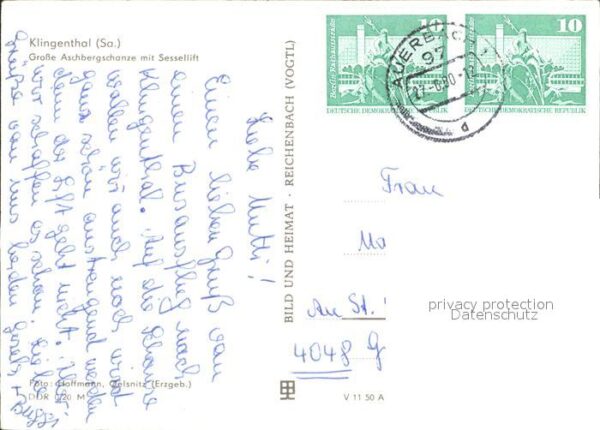 Klingenthal (Sa.)
Große Aschbergschanze mit Sessellift
Liebe Mutti!
Einen lieben Gruß von
einem Busausflug nach
Klingenthal. Auf die Schanze
wollen wir auch noch, wird
ganz schön anstrengend werden
denn der Lift geht nicht. Aber
wir schaffen es schon. Liebe
Grüße von uns beiden
Foto: Hoffmann, Oelsnitz (Erzgeb.)
DDR 0,20 M
BILD UND HEIMAT · REICHENBACH (VOGTL)
V 11 50 A
10
10
Berlin, Rathausstraße
Berlin, Rathausstraße
DEUTSCHE DEMOKRATISCHE REPUBLIK
DEUTSCHE DEMOKRATISCHE REPUBLIK
AUERBACH
d
Frau
Ma
An St.
4048 G
privacy protection
Datenschutz